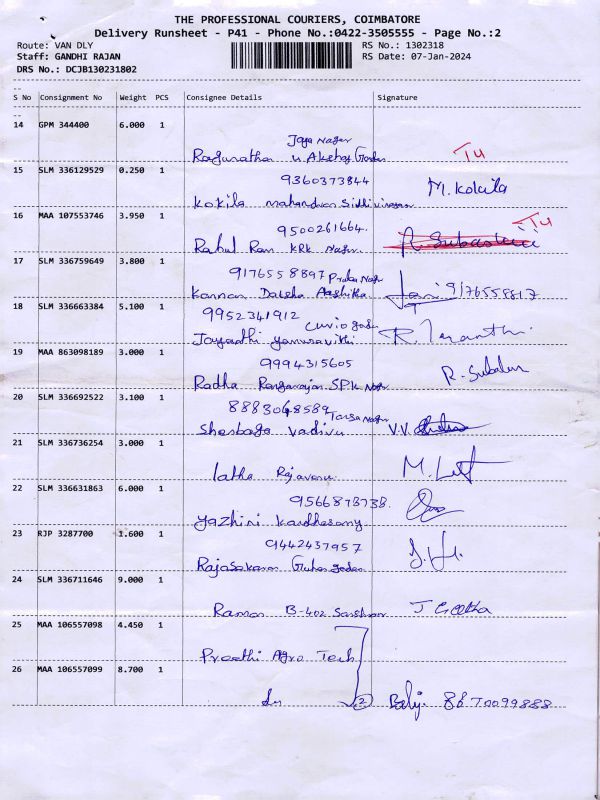 THE PROFESSIONAL COURIERS, COIMBATORE
Delivery Runsheet - P41 - Phone No.:0422-3505555 - Page No.:2
Route: VAN DLY
RS No.: 1302318
Staff: GANDHI RAJAN
RS Date: 07-Jan-2024
DRS No.: DCJB130231802
S No Consignment No Weight PCS Consignee Details Signature
14 GPM 344400 6.000 1
Jaya Nagar
Ragunathan
15 SLM 336129529 0.250 1
9360373844 M.Kokila
Kokila mahendran Siddhivinagar
16 MAA 107553746 3.950 1
9500261664.
Rahul Ram KRK Nagar
17 SLM 336759649 3.800 1
9176558897
Kannan Daksha Aashika 9176558817
18 SLM 336663384 5.100 1
9952341912
Jayanthi
19 MAA 863098189 3.000 1
9994315605
Radha Rangarajan SPK Nagar
20 SLM 336692522 3.100 1
8883048589
Shenbaga Vadivu V.V.
21 SLM 336736254 3.000 1
latha
22 SLM 336631863 6.000 1
9566873738.
Yazhini Kandhasamy
23 RJP 3287700 1.600 1
9442437957
Rajasekaran
24 SLM 336711646 9.000 1
Raman B-402 J Geetha
25 MAA 106557098 4.450 1
Preethi Agro Tech
26 MAA 106557099 8.700 1
2 Balji. 8870099888